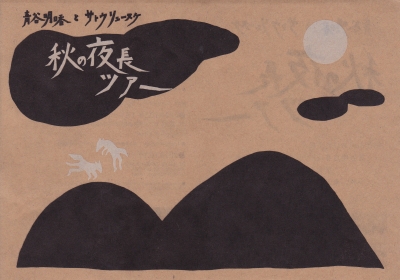 青谷明日香とサトウリュースケ
秋の夜長
ツアー